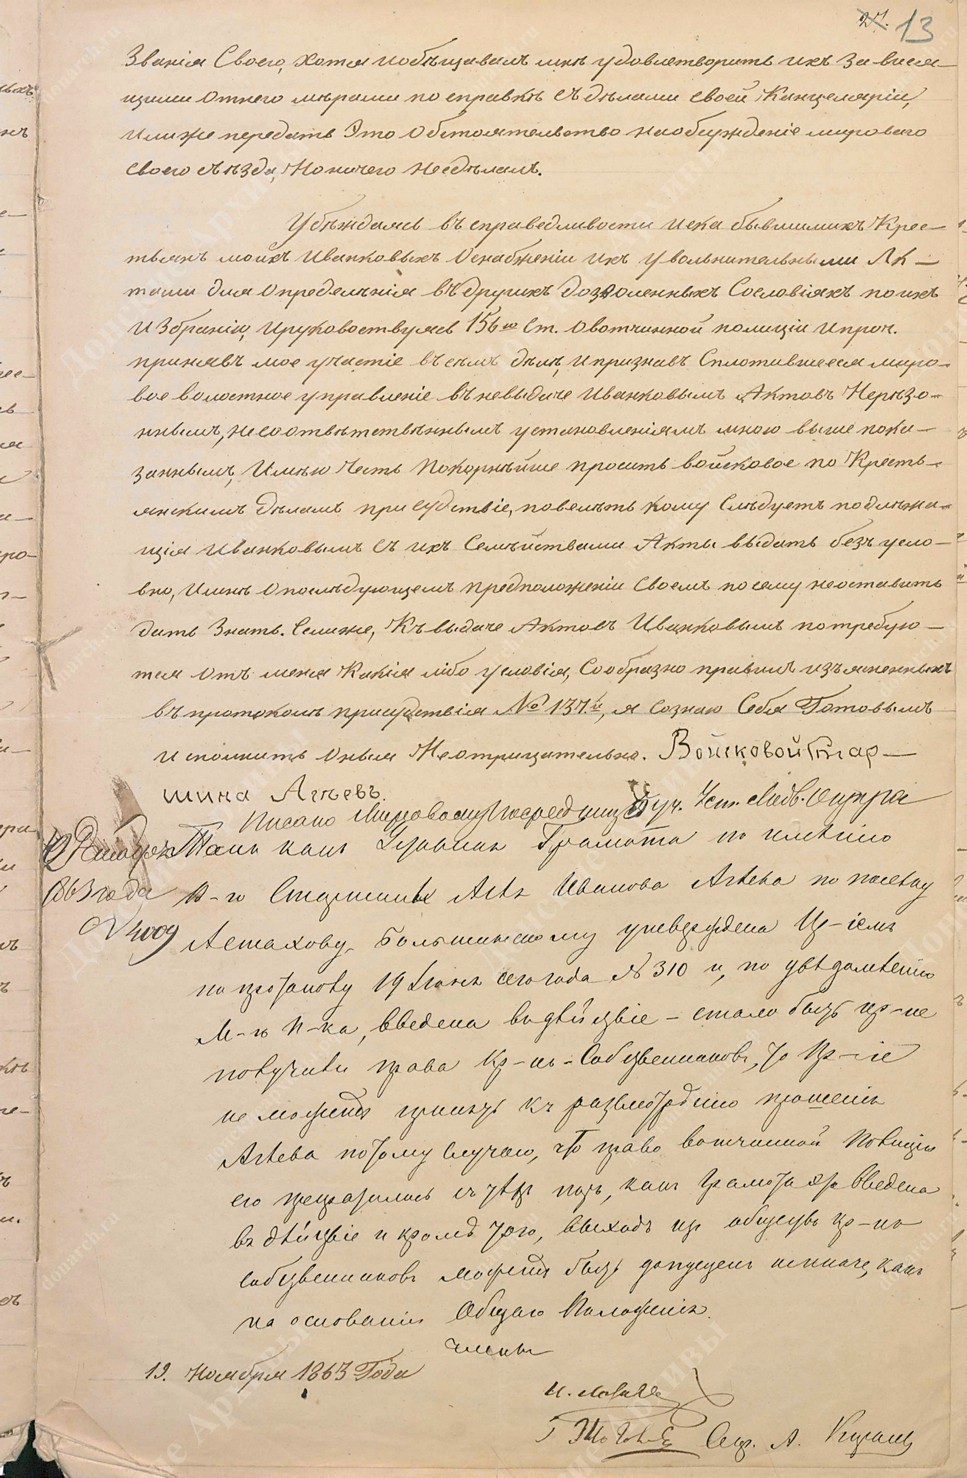 13
Званія Своего, хотя и обѣщавалъ мнѣ удовлетворить ихъ зависящими
отнего мѣрами по справкѣ съ дѣлами своей Канцеляріи,
илиже передать Это Обстоятельство наобсужденіе мироваго
своего съѣзда, Но ничего несдѣлалъ.
Убѣждаясь въ справедливости иска бывшимихъ Крес-
тьянъ моихъ Иванковыхъ Оснабженіи ихъ Увольнительными Ак-
тами для Определѣнія въ другихъ дозволенныхъ Сословіяхъ по ихъ
Избранію, Ируководствуясь 156ю Ст. О вотчинной полиціи ипроч.
принявъ мое участіе въ семъ дѣлѣ, Ипризнавъ Сплотившееся миро-
вое волостное управленіе въ невыдаче Иванковымъ Актовъ Нерѣзо-
ннымъ, несоотвѣтствѣннымъ установленіямъ мною выше пока-
заннымъ, Имѣю Честь Покорнѣйше просить войсковое по Кресть-
янскимъ Дѣламъ присудствіе, повелѣть кому Слѣдуетъ подлежа-
щія Иванковымъ Съ ихъ Семѣйствами Акты выдать безъ усло-
вно, Имнѣ Опослѣдующемъ предположеніи Своемъ по сему неоставить
дать Знать. Еслиже, Къ выдаче Актовъ Иванковымъ потребую-
тся Отъ меня Какія либо условія, Сообразно правилъ изъясненныхъ
въ протоколѣ присудствія № 137й, я Сознаю Себя Готовымъ
исполнить Оныя Неотрицательно. Войсковой Стар-
шина Агѣевъ.
Писано Мировому Посреднику Буч. Уст. Медв. Округа
1863 года
№ 4009
Такъ какъ Уставная Грамота по имѣнію
В-го Старшины Аѳа Иванова Агѣева по поселку
Астахову, Большинскому утверждена Пр-іемъ
по протоколу 19 Іюня сего года № 310 и, по увѣдомленію
М-го П-ка, введена въ дѣйствіе – стало быть кр-не
получили права Кр-нъ-Собственниковъ, то Пр-іе
не можетъ принять къ разсмотрѣнію прошенія
Агѣева потому случаю, что право вотчинной Полиціи
его прекратилось съ тѣхъ поръ, какъ Грамота введена
въ дѣйствіе и кромѣ того, выходъ изъ общества кр-нъ
собственниковъ можетъ быть допущенъ неиначе, какъ
на основаніи Общаго Положенія.
Члены
19. Ноября 1863 Года